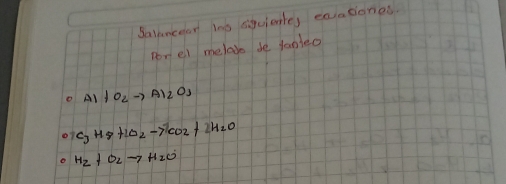 Balancear las siguientes ecuaciones.
Por el metodo de tanteo
• Al + O2 → Al2O3
• C3H8 + O2 → CO2 + H2O
• H2 + O2 → H2O